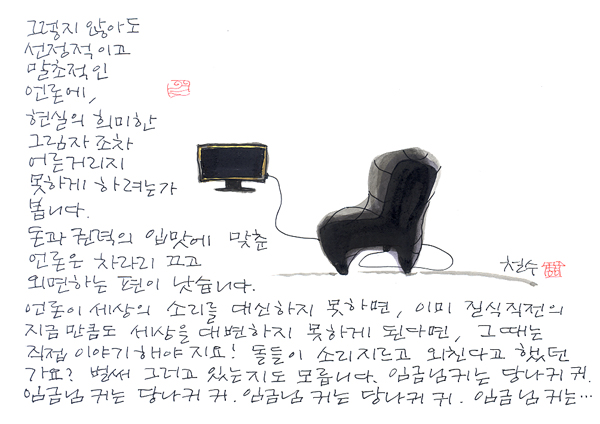 그렇지 않아도
선정적이고
말초적인
언론에,
현실의 희미한
그림자조차
어른거리지
못하게 하려는가
봅니다.
돈과 권력의 입맛에 맞춘
언론은 차라리 끄고
외면하는 편이 낫습니다.
철수
언론이 세상의 소리를 대신하지 못하면, 이미 질식직전의
지금만큼도 세상을 대변하지 못하게 된다면, 그때는
직접 이야기해야지요! 돌들이 소리지르고 외친다고 했던
가요? 벌써 그러고 있는지도 모릅니다. 임금님귀는 당나귀 귀.
임금님귀는 당나귀 귀. 임금님귀는 당나귀 귀. 임금님귀는…